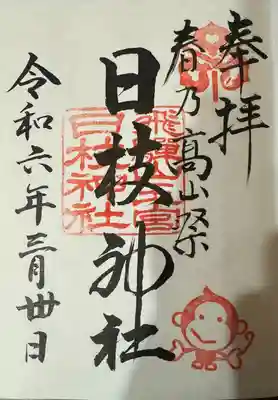 奉拝
春乃高山祭
飛騨山王宮
日枝神社
日枝神社
令和六年三月卅日